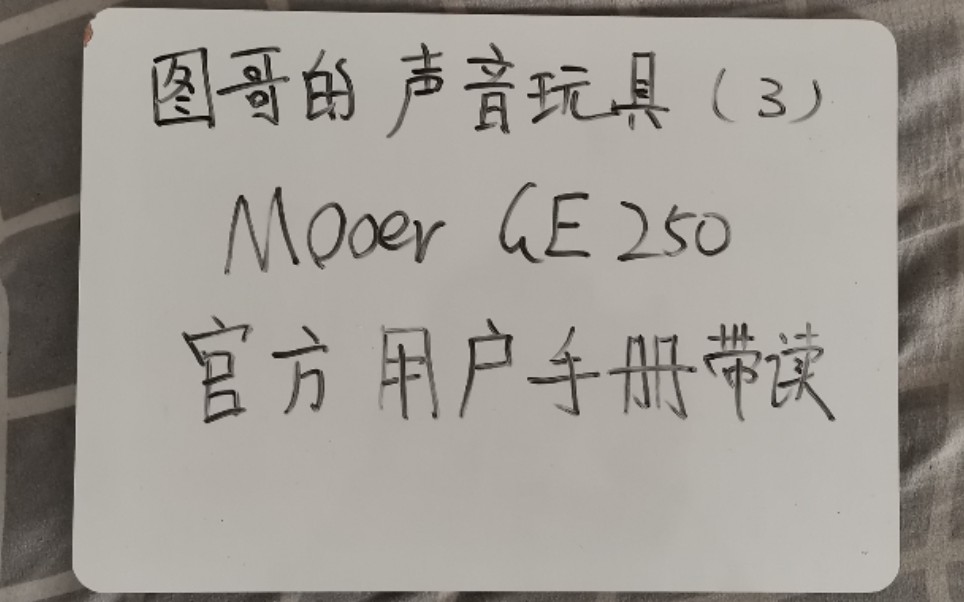 图哥的声音玩具（3）
Mooer GE250
官方用户手册带读